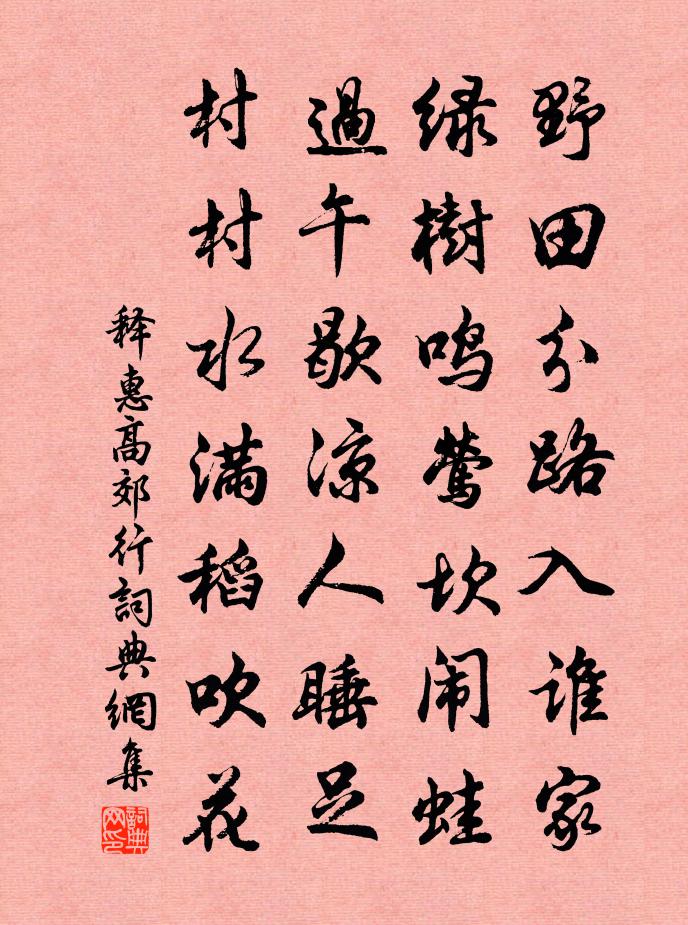 野田分路入谁家
绿樹鸣莺坎闹蛙
過午歇凉人睡足
村村水满稻吹花
释惠高郊行詞典網集
詞典网印